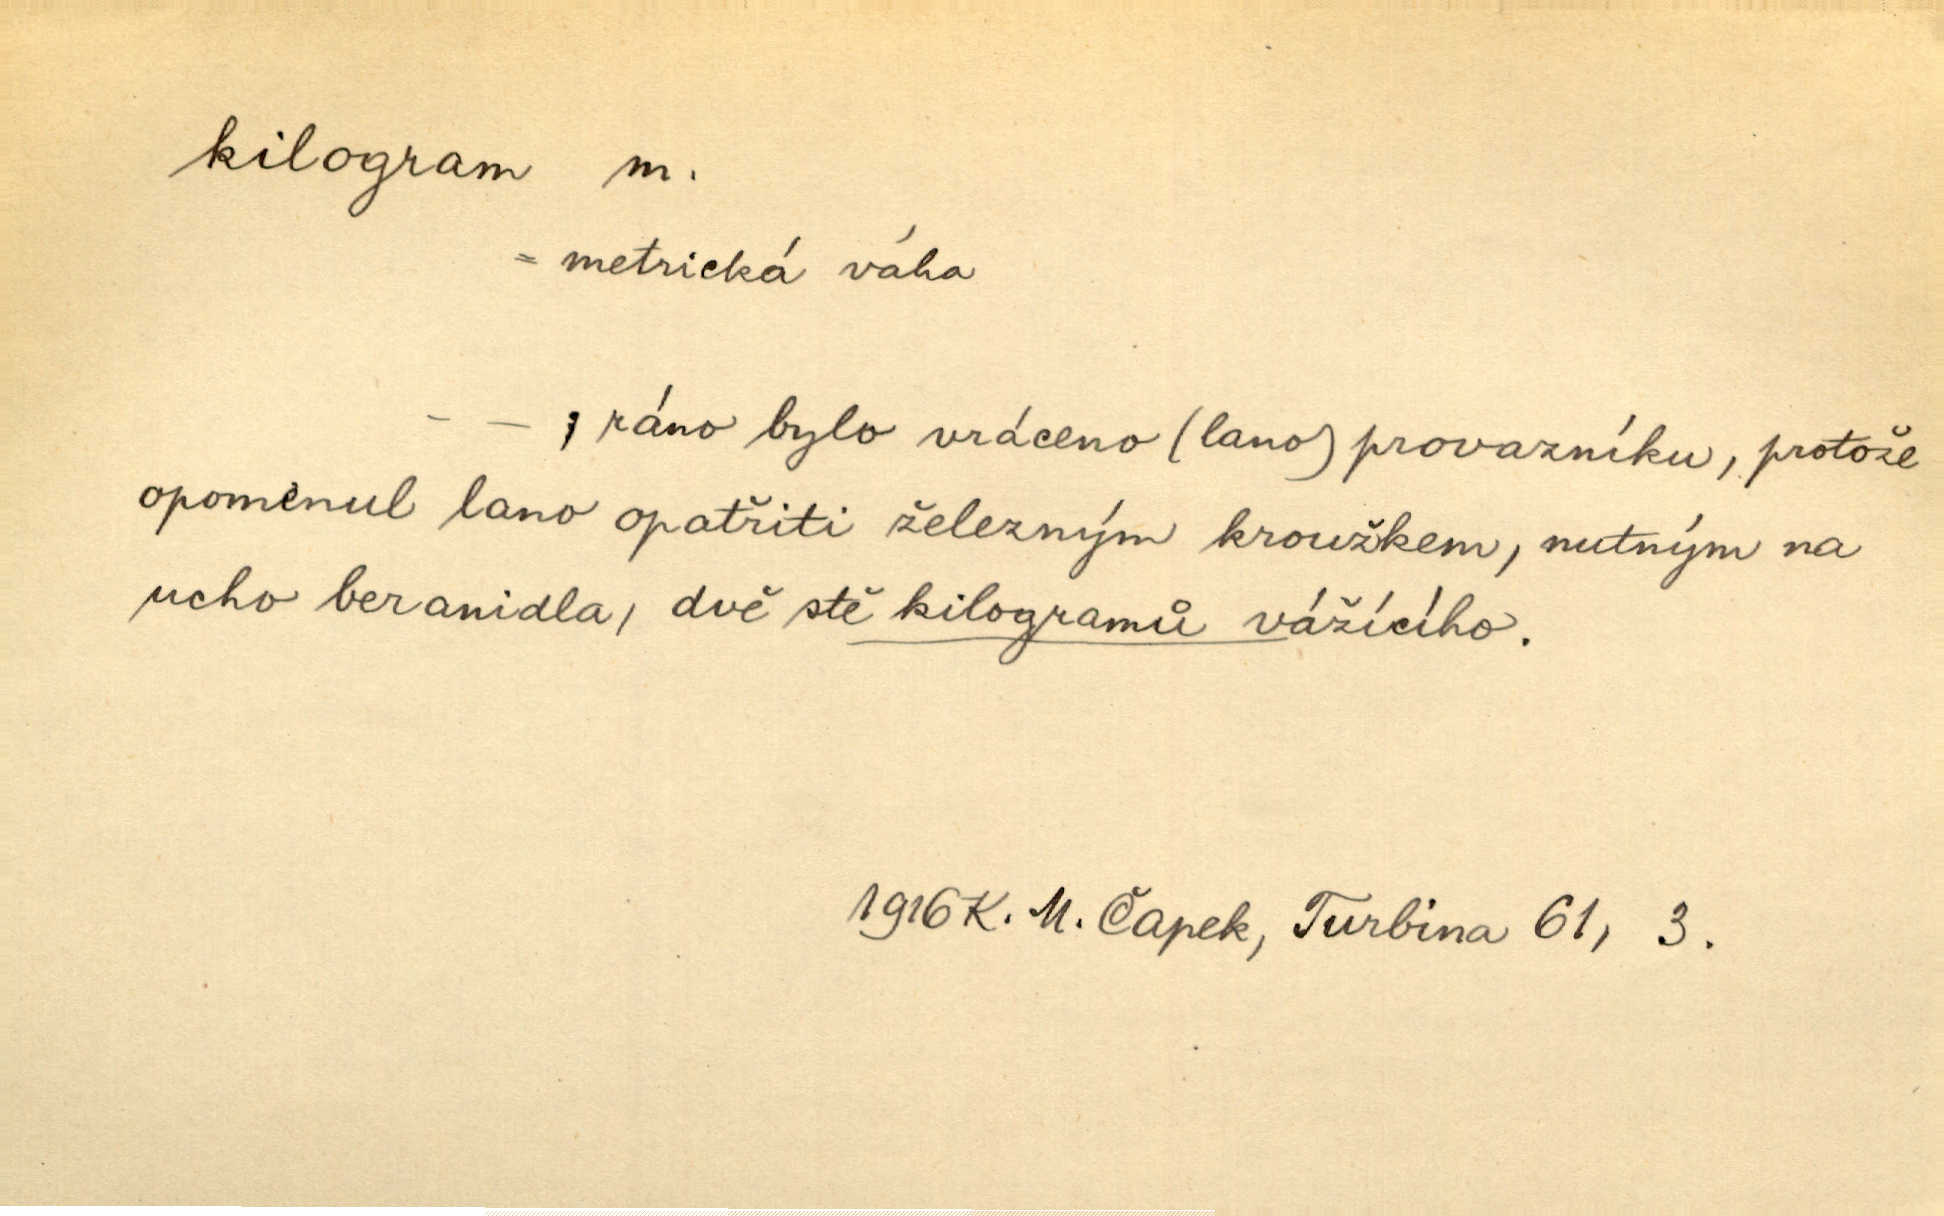 kilogram m.
= metrická váha
- - ; ráno bylo vráceno (lano) provazníku, protože
opomenul lano opatřiti železným kroužkem, nutným na
ucho beranidla, dvě stě kilogramů vážícího.
1916 K. M. Čapek, Turbina 61, 3.